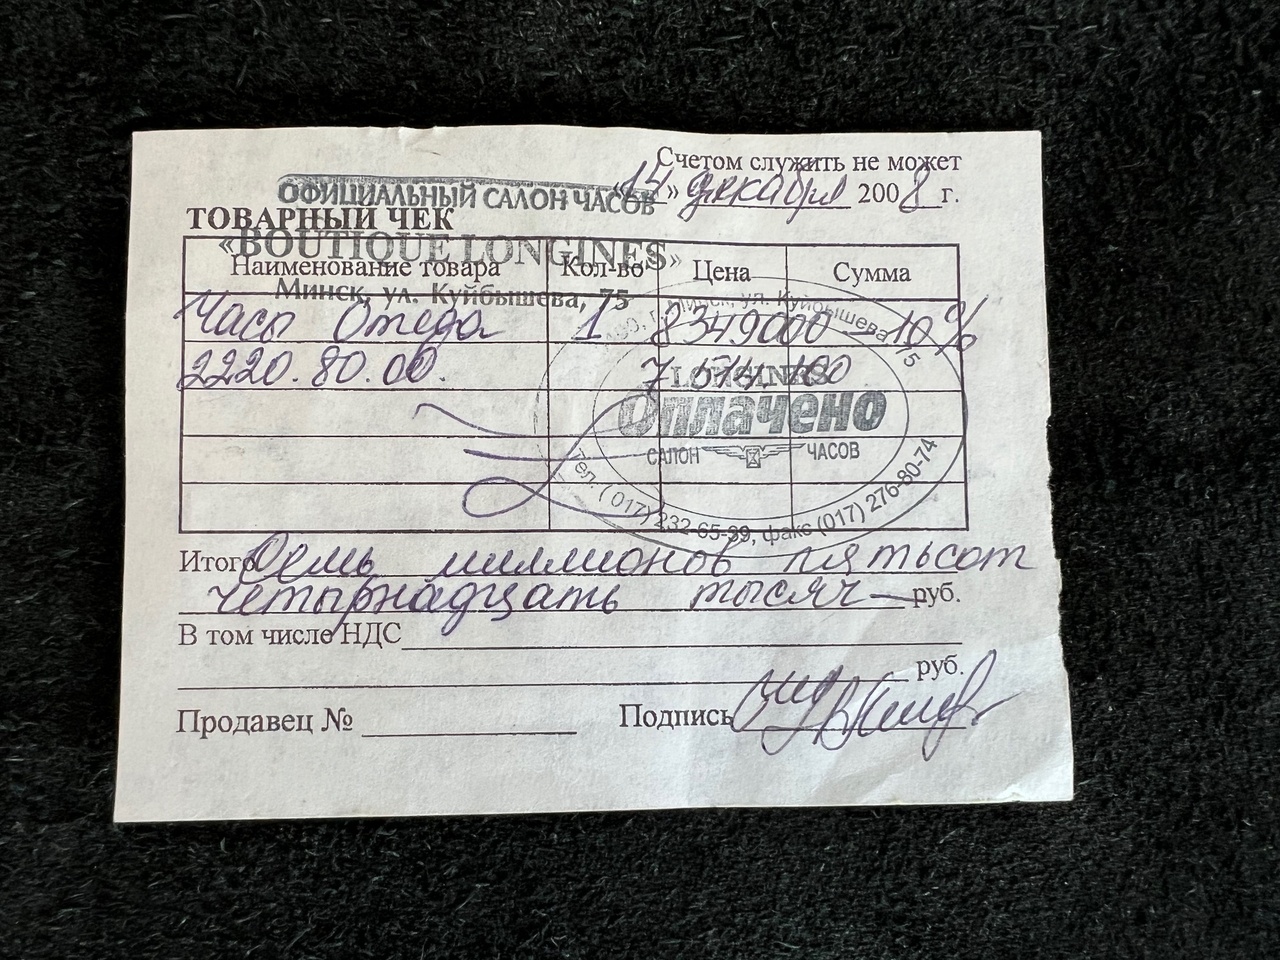 Счетом служить не может
«14» декабря 2008 г.
ОФИЦИАЛЬНЫЙ САЛОН ЧАСОВ
ТОВАРНЫЙ ЧЕК
«BOUTIQUE LONGINES»
Наименование товара Кол-во Цена Сумма
Минск, ул. Куйбышева, 75
Часы Омега 1 8349000 – 10%
2220.80.00. 7 514 100
г. Минск, ул. Куйбышева 75
LONGINES
Оплачено
САЛОН ЧАСОВ
Тел. (017) 232-65-39, факс (017) 276-80-74
Итого Семь миллионов пятьсот
четырнадцать тысяч руб.
В том числе НДС
руб.
Продавец № Подпись